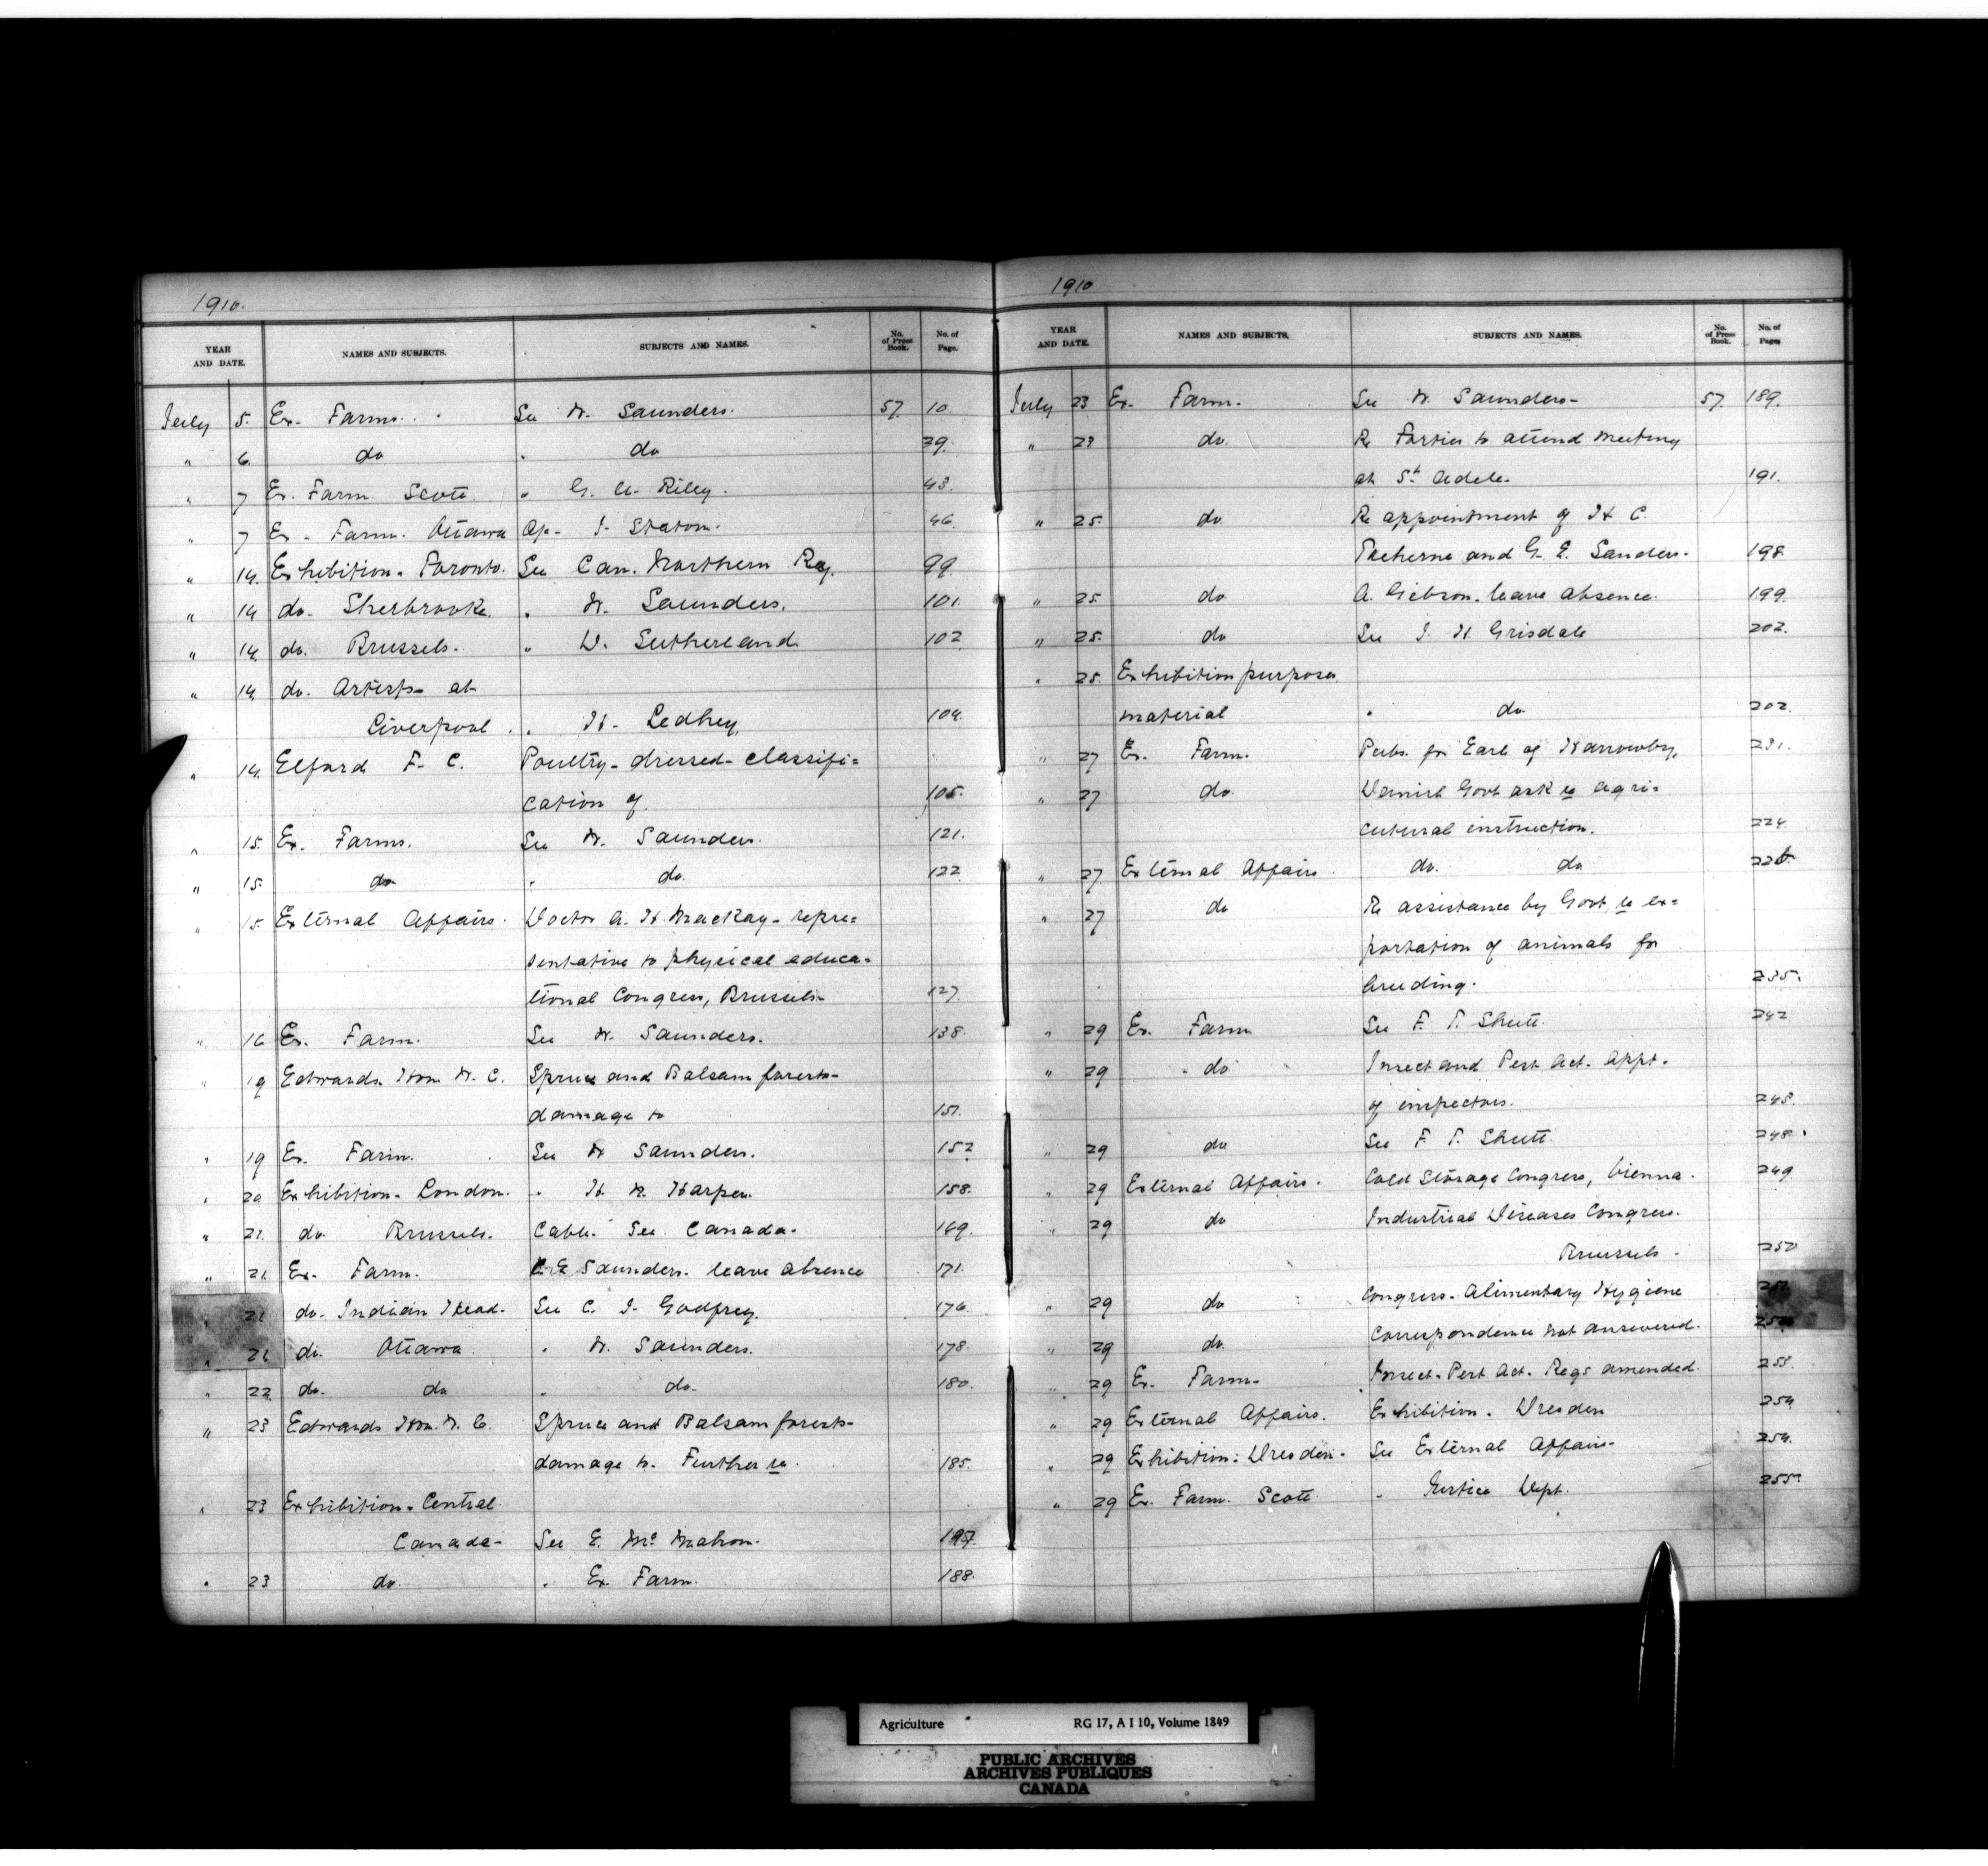 1910.
YEAR AND DATE. NAMES AND SUBJECTS. SUBJECTS AND NAMES. No. of Press Book. No. of Page.
July 5. Ex. Farms. See W. Saunders. 57. 10.
" 6. do " do 39.
" 7 Ex. Farm Scott. " G. A. Riley. 43.
" 7 Ex. Farm. Ottawa Ap- J. Statom. 46.
" 14. Exhibition. Toronto. See Can. Northern Ry. 99.
" 14 do. Sherbrooke. " W. Saunders. 101.
" 14. do. Brussels. " D. Sutherland 102
" 14. do. Artists at
Liverpool. " H. Ledhey. 104.
" 14. Elford F. C. Poultry- dressed- classifi=
cation of. 105.
" 15. Ex. Farms. See W. Saunders. 121.
" 15. do " do. 122
" 15. External Affairs. Doctor A. H. MacKay- repre=
sentative to physical educa=
tional Congress, Brussels- 127.
" 16 Ex. Farm. See W. Saunders. 138.
" 19 Edwards Hon. W. C. Spruce and Balsam forests-
damage to 151.
" 19 Ex. Farm. See W Saunders. 152
" 20 Exhibition. London. " H. W. Harper. 158.
" 21. do. Brussels. Cable. See Canada. 169.
" 21. Ex. Farm. C E Saunders. leave absence 171.
" 21 do. Indian Head. See C. J. Godfrey. 176.
" 21 do. Ottawa " W. Saunders. 178.
" 22 do. do " do. 180.
" 23 Edwards Hon. W. C. Spruce and Balsam forests-
damage to. Further re. 185.
" 23 Exhibition. Central
Canada- See E. McMahon. 187.
" 23 do. " Ex. Farm. 188.
1910
YEAR AND DATE. NAMES AND SUBJECTS. SUBJECTS AND NAMES. No. of Press Book. No. of Pages
July 23 Ex. Farm. See W. Saunders- 57. 189.
" 23 do. Re Fortier to attend meeting
at St. Adele. 191.
" 25. do Re appointment of H C.
Treherne and G. E. Sanders. 198
" 25. do A. Gibson. leave absence. 199.
" 25. do See J. H Grisdale 202.
" 25. Exhibition purposes
material " do 202.
" 27 Ex. Farm. Pubs. for Earl of Harrowby. 231.
" 27 do. Danish Govt ask re agri=
cultural instruction. 224.
" 27 External Affairs. do. do
" 27 do Re assistance by Govt re ex=
portation of animals for
breeding. 235.
" 29 Ex. Farm See F. T. Shutt. 242.
" 29 do Insect and Pest Act. Appt.
of inspectors. 245.
" 29 do See F. T. Shutt. 248.
" 29 External Affairs. Cold Storage Congress, Vienna. 249
" 29 do Industrial Diseases Congress.
Brussels. 250
" 29 do Congress. Alimentary Hygiene
" 29 do. Correspondence not answered.
" 29 Ex. Farm- Insect. Pest Act. Regs amended. 253.
" 29 External Affairs. Exhibition. Dresden 254
" 29 Exhibition: Dresden. See External Affairs- 254.
" 29 Ex. Farm. Scott. " Justice Dept. 255.
Agriculture RG 17, A I 10, Volume 1849
PUBLIC ARCHIVES
ARCHIVES PUBLIQUES
CANADA